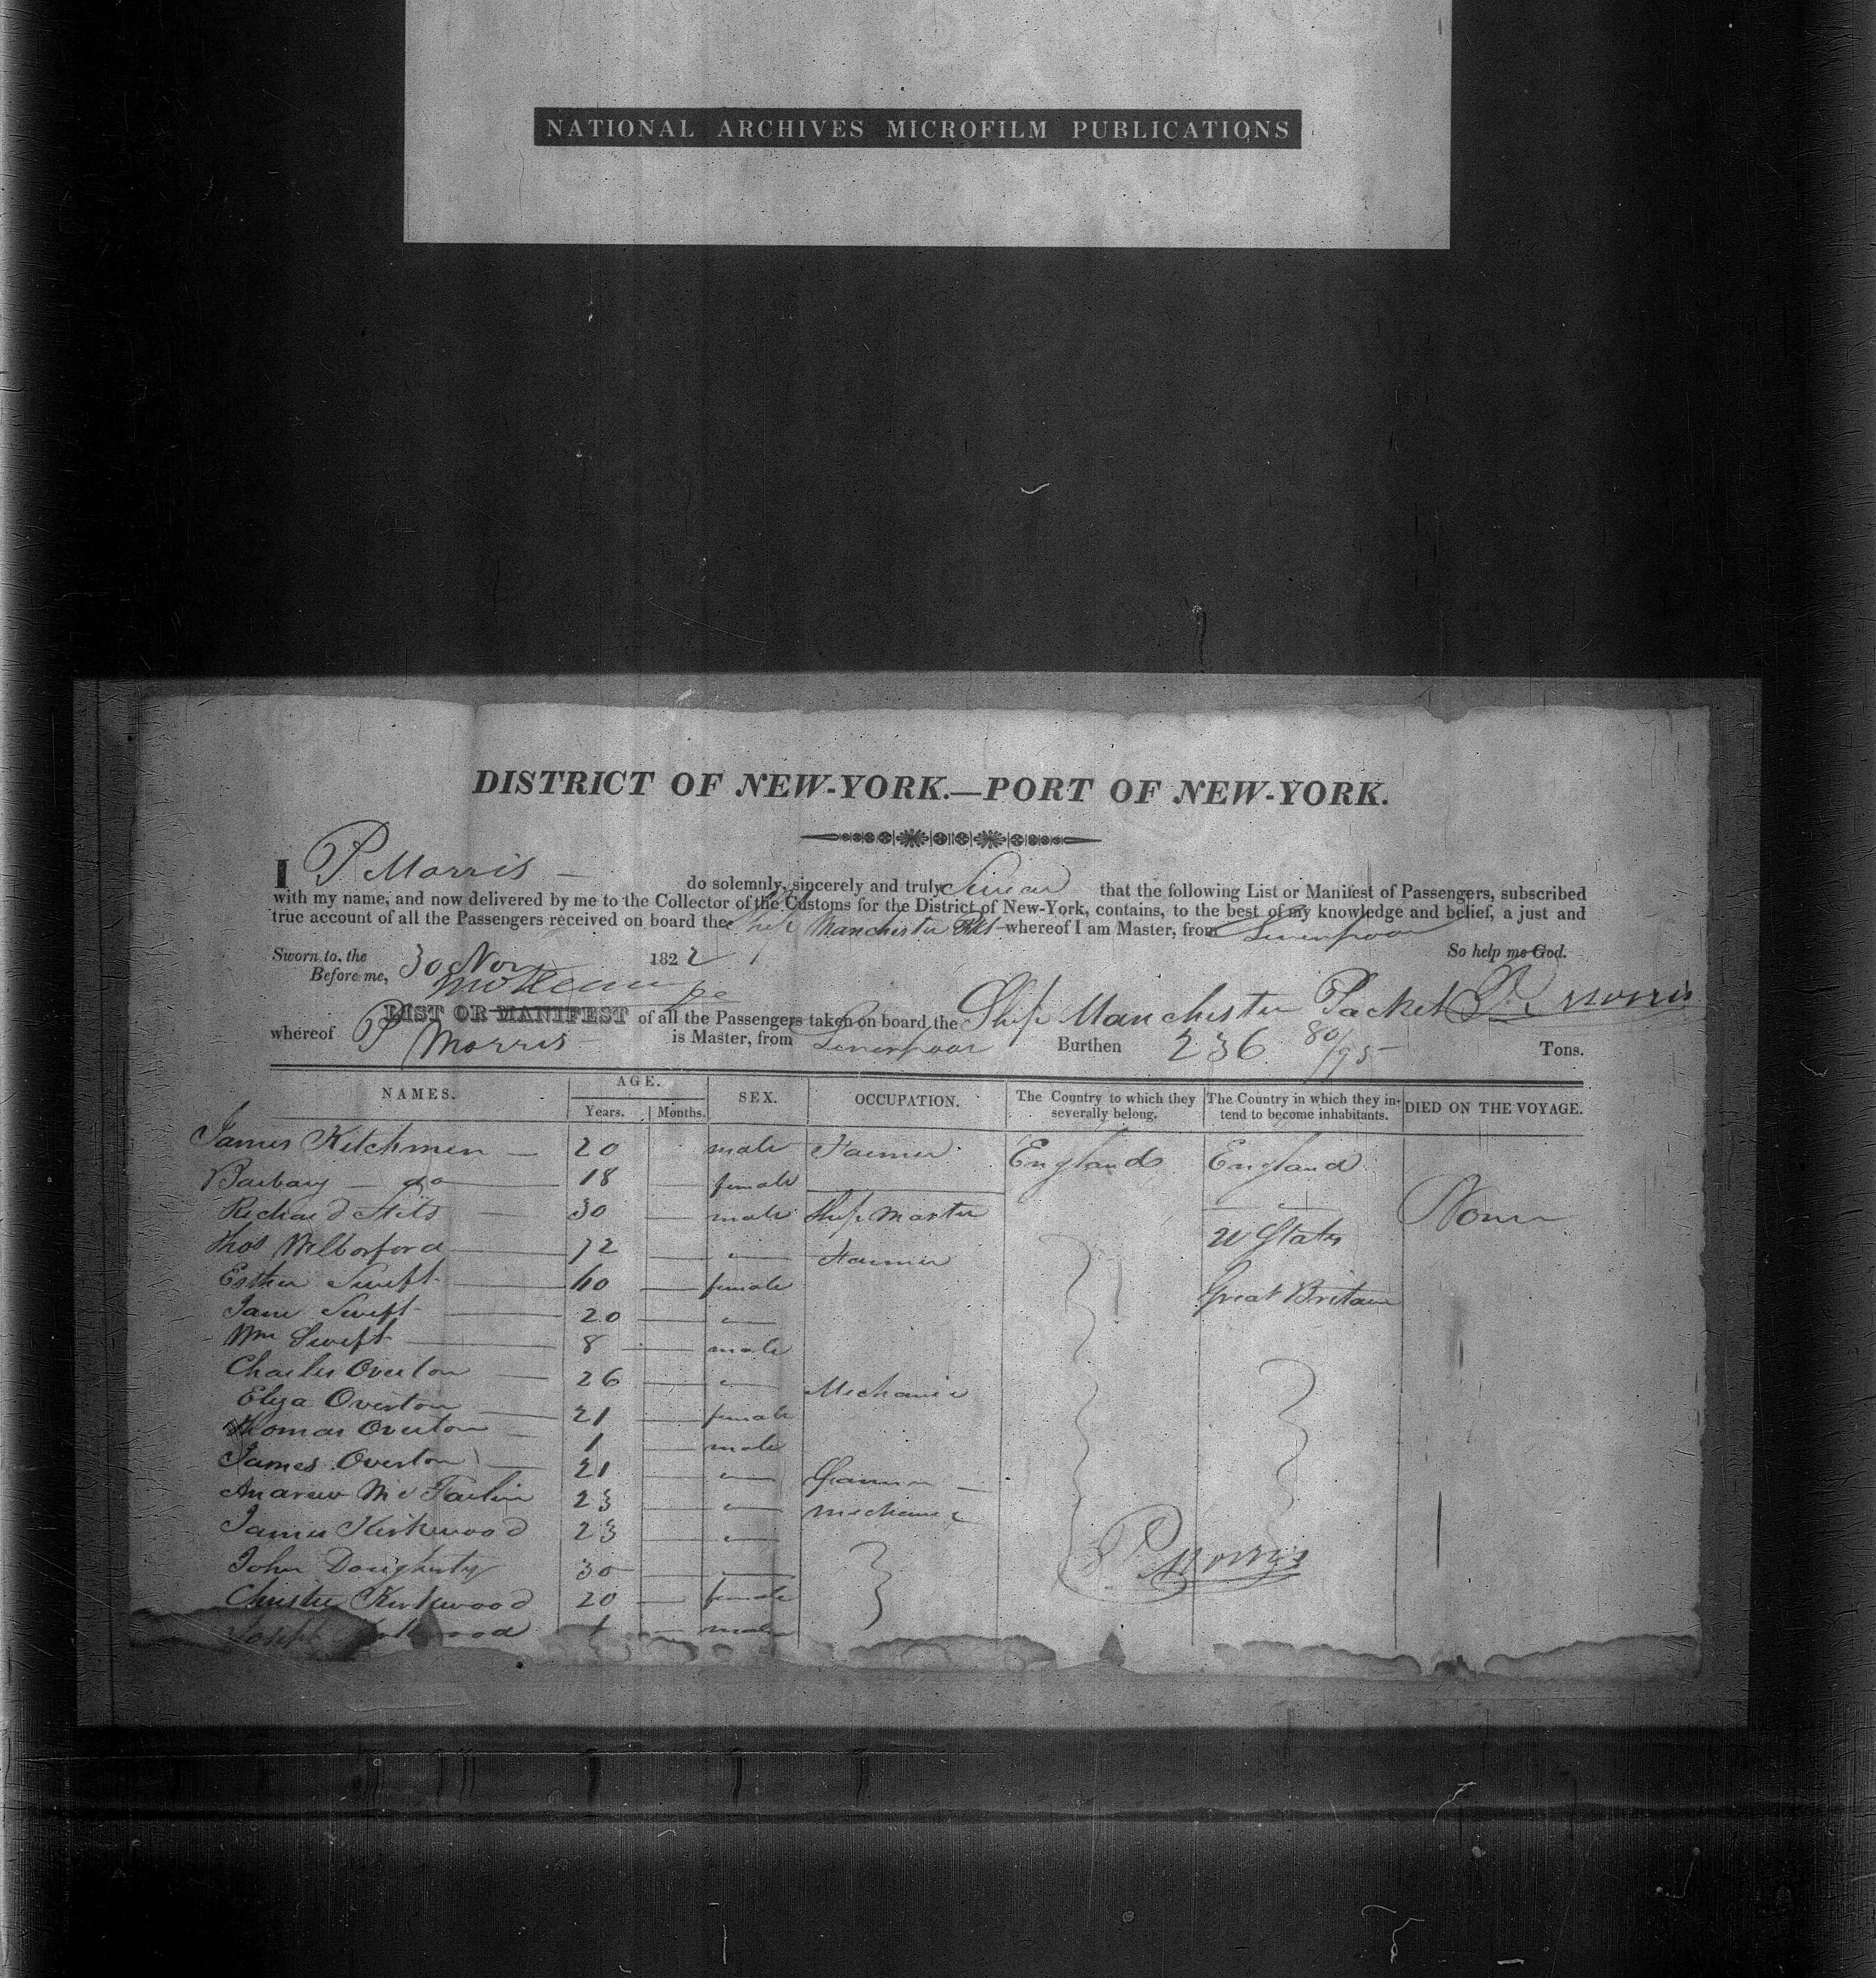 NATIONAL ARCHIVES MICROFILM PUBLICATIONS
DISTRICT OF NEW-YORK.—PORT OF NEW-YORK.
I P Morris — do solemnly, sincerely and truly Swear that the following List or Manifest of Passengers, subscribed
with my name, and now delivered by me to the Collector of the Customs for the District of New-York, contains, to the best of my knowledge and belief, a just and
true account of all the Passengers received on board the Ship Manchester Pkt whereof I am Master, from Liverpool
Sworn to, the 30 Nov 1822 So help me God.
Before me,
LIST OR MANIFEST of all the Passengers taken on board the Ship Manchester Packet P. Morris
whereof P Morris is Master, from Liverpool Burthen 236 80/95 Tons.
NAMES. AGE. SEX. OCCUPATION. The Country to which they severally belong. The Country in which they intend to become inhabitants. DIED ON THE VOYAGE.
Years. Months.
James Kitchmen — 20 male Farmer England England
Barbary — do — 18 — female
Richard Stits — 30 — male Ship Master None
Thos Wilborford — 72 — " Farmer U States
Esther Swift — 40 — female Great Britain
Jane Swift — 20 — "
Wm Swift — 8 — male
Charles Overton — 26 — " Mechanic
Elyza Overton — 21 — female
Thomas Overton — 1 — male
James Overton — 21 — "
Andrew Mc Farlin 23 — " mechanic
James Kirkwood 23 — "
John Dougherty 30 — P. Morris
Christie Kirkwood 20 — female
Joseph Kirkwood 1 — male